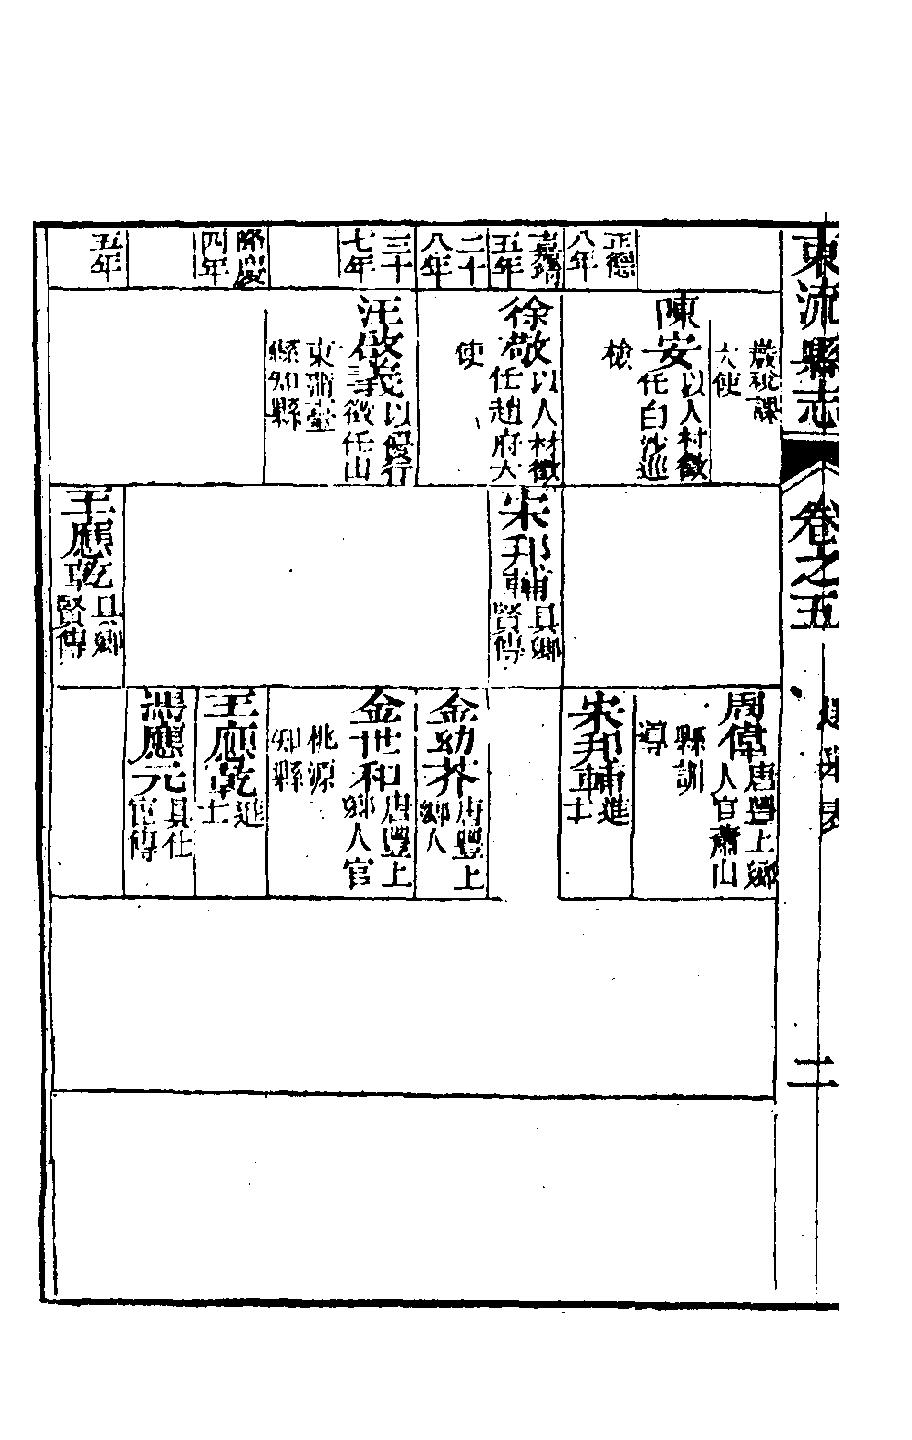 東流縣志
卷之五
選舉表
二
正德
八年
嘉靖
五年
二十
八年
三十
七年
隆慶
四年
五年
嚴稅課
大使
陳安以人材徵
任白沙巡
檢
徐敬以人材徵
任趙府大
使
汪啟義以優行
徵任山
東蒲臺
縣知縣
宋邦輔具鄉
賢傳
王應乾具鄉
賢傳
周偉唐豐上鄉
人官蕭山
縣訓
導
宋邦輔進
士
金幼芥唐豐上
鄉人
金世和唐豐上
鄉人官
桃源
知縣
王應乾進
士
應元具仕
宦傳